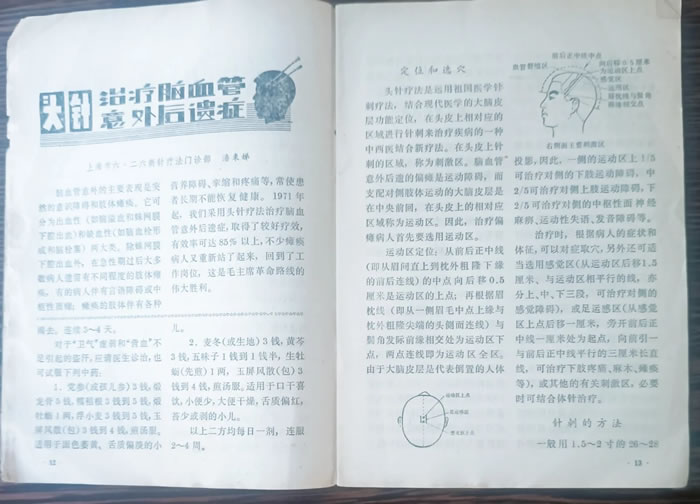 头针
治疗脑血管
意外后遗症
上海市六·二六新针疗法门诊部
脑血管意外的主要表现是突
然的意识障碍和肢体瘫痪。它可
分为出血性（如脑溢血和蛛网膜
下腔出血）和缺血性（如脑血栓形
成和脑栓塞）两大类。除蛛网膜
下腔出血外，在急性期过后大多
数病人遗留有不同程度的肢体瘫
痪，有的病人伴有言语障碍或中
枢性面瘫；瘫痪的肢体伴有各种
营养障碍、挛缩和疼痛等，常使患
者长期不能恢复健康。1971年
起，我们采用头针疗法治疗脑血
管意外后遗症，取得了较好疗效，
有效率可达85%以上，不少瘫痪
病人又重新站了起来，回到了工
作岗位，这是毛主席革命路线的
伟大胜利。
褥去。连续3～4天。
对于“卫气”虚弱和“营血”不
足引起的盗汗，应请医生诊治，也
可试服下列中药：
1．党参（或孩儿参）3钱，煅
龙骨5钱，糯稻根3钱到5钱，煅
牡蛎1两，浮小麦3钱到5钱，玉
屏风散（包）3钱到4钱，煎汤服。
适用于面色萎黄、舌质偏淡的小
儿。
2．麦冬（或生地）3钱，黄芩
3钱，五味子1钱到1钱半，生牡
蛎（先煎）1两，玉屏风散（包）3钱
到4钱，煎汤服。适用于口干喜
饮，小便少，大便干燥，舌质偏红，
苔少或剥的小儿。
以上二方均每日一剂，连服
2～4周。
· 12
定位和选穴
头针疗法是运用祖国医学针
刺疗法，结合现代医学的大脑皮
层功能定位，在头皮上相对应的
区域进行针刺来治疗疾病的一种
中西医结合新疗法。在头皮上针
刺的区域，称为刺激区。脑血管
意外后遗的偏瘫是运动障碍，而
支配对侧肢体运动的大脑皮层是
在中央前回，在头皮上的相对应
区域称为运动区。因此，治疗偏
瘫病人首先要选用运动区。
运动区定位：从前后正中线
（即从眉间直上到枕外粗隆下缘
的前后连线）的中点向后移0.5
厘米是运动区的上点；再根据眉
枕线（即从一侧眉毛中点上缘与
枕外粗隆尖端的头侧面连线）与
鬓角发际前缘相交处为运动区下
点，两点连线即为运动区全区。
由于大脑皮层是代表倒置的人体
运动区上点
足运感区
前后正中线中点
血管舒缩区
向后移0.5厘米
为运动区上点
感觉区
运动区
右侧面主要刺激区
投影，因此，一侧的运动区上1/5
可治疗对侧的下肢运动障碍，中
2/5可治疗对侧上肢运动障碍，下
2/5可治疗对侧的中枢性面神经
麻痹、运动性失语、发音障碍等。
治疗时，根据病人的症状和
体征，可以对症取穴，另外还可适
当选用感觉区（从运动区后移1.5
厘米、与运动区相平行的线，亦
分上、中、下三段，可治疗对侧的
感觉障碍），或足运感区（从感觉
区上点后移一厘米，旁开前后正
中线一厘米处为起点，向前引一
与前后正中线平行的三厘米长直
线，可治疗下肢疼痛、麻木、瘫痪
等），或其他的有关刺激区，必要
时可结合体针治疗。
针刺的方法
一般用1.5～2寸的26～28
· 13 ·